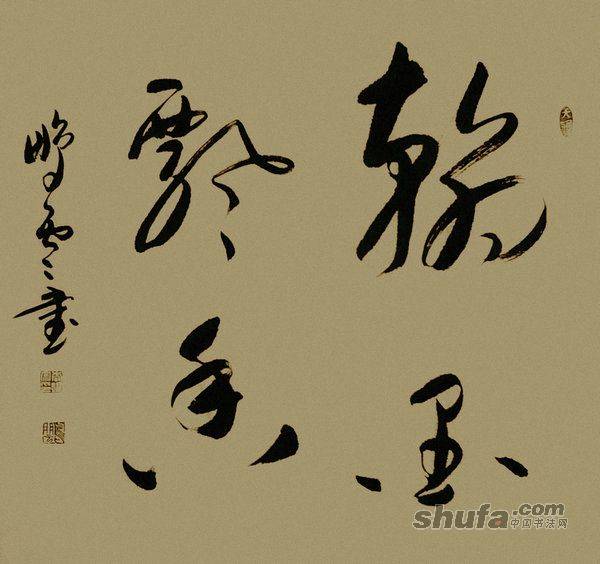 翰墨
飘香
鹏云书
shufa.com
中国书法网